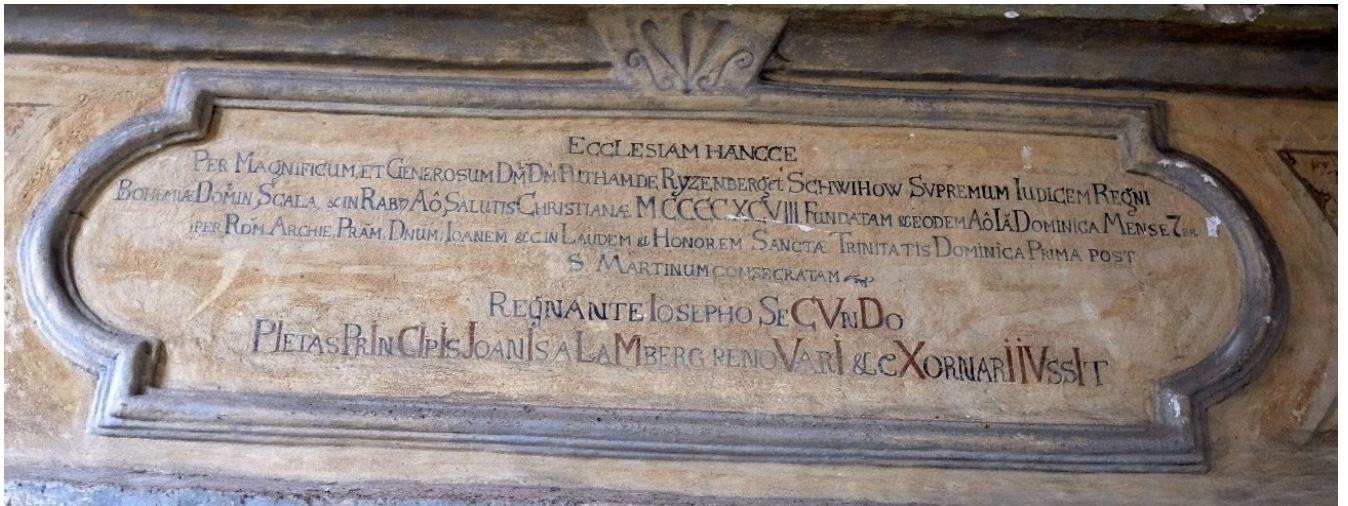 ECCLESIAM HANCCE
PER MAGNIFICUM, ET GENEROSUM DM̃ DM̃ PUTHAM DE RYZENBERG et SCHWIHOW SVPREMUM IUDICEM REGNI
BOHEMIÆ DOMIN, SCALA, & IN RABY Aô, SALUTIS CHRISTIANÆ MCCCCXCVIII FUNDATAM & EODEM Aô IÂ DOMINICA MENSE 7BR
PER RDM̃. ARCHIE, PRÆM, DNUM, IOANEM &c. IN LAUDEM & HONOREM SANCTÆ TRINITATIS DOMINICA PRIMA POST
S. MARTINUM CONSECRATAM
REGNANTE IOSEPHO SECVNDO
PIETAS PRINCIPIS JOANIS A LAMBERG RENOVARI & EXORNARI IVSSIT